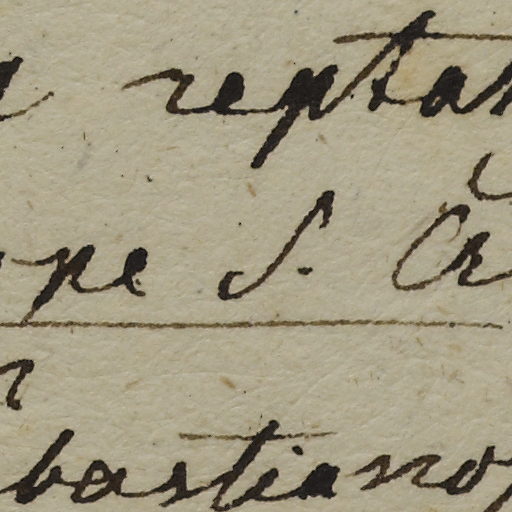 reptan
ope S. Cr
bastianop